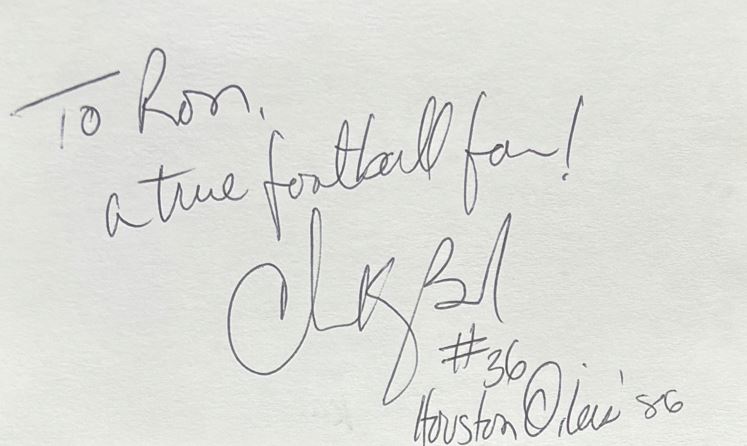 To Ron,
a true football fan!
#36
Houston Oilers '86